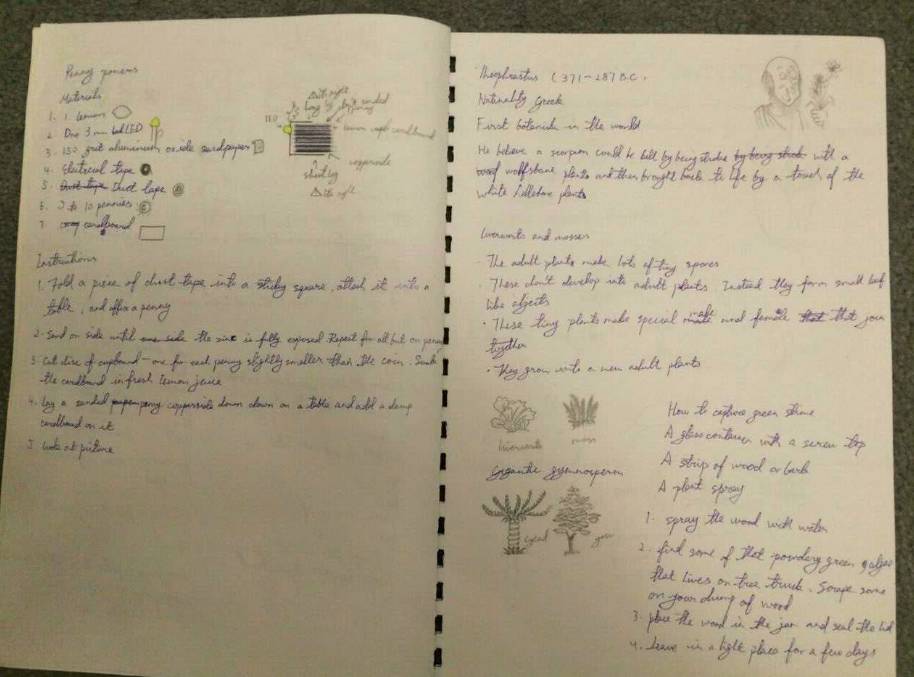 Penny powers
Materials
1. 1 lemon
2. One 3 mm LED
3. 150 grit aluminum oxide sandpaper
4. Electrical tape
5. Duct tape
6. 7 to 10 pennies
7. cardboard
LED
long leg
sanded penny
lemon cardboard
copperside
short leg
Instructions
1. Fold a piece of duct tape into a sticky square, attach it into a
table, and affix a penny
2. Sand on side until the zinc is fully exposed Repeat for all but on penny
3. Cut disc of cardboard - one for each penny slightly smaller than the coin. Soak
the cardboard in fresh lemon juice
4. Lay a sanded penny copperside down down on a table and add a damp
cardboard on it
5 Look at picture
Theophrastus (371-287 B.C.
Nationality Greek
First botanist in the world
He believe a scorpion could be kill by being stroke by being strok with a
wolfsbane plants and then brought back to life by a touch of the
white hellebore plants
Liverworts and mosses
• The adult plants make lots of tiny spores
• These don't develop into adult plants. Instead they form small leaf
like objects
• These tiny plants make special male and female that that join
together
• They grow into a new adult plants
liverworts
moss
Gigantic gymnosperm
cycad
How to capture green slime
A glass container with a screw top
A strip of wood or bark
A plant spray
1. spray the wood with water
2. find some of that powdery green algae
that lives on tree trunk. Scrape some
on your of wood
3. place the wood in the jar and seal the lid
4. Leave in a light place for a few days